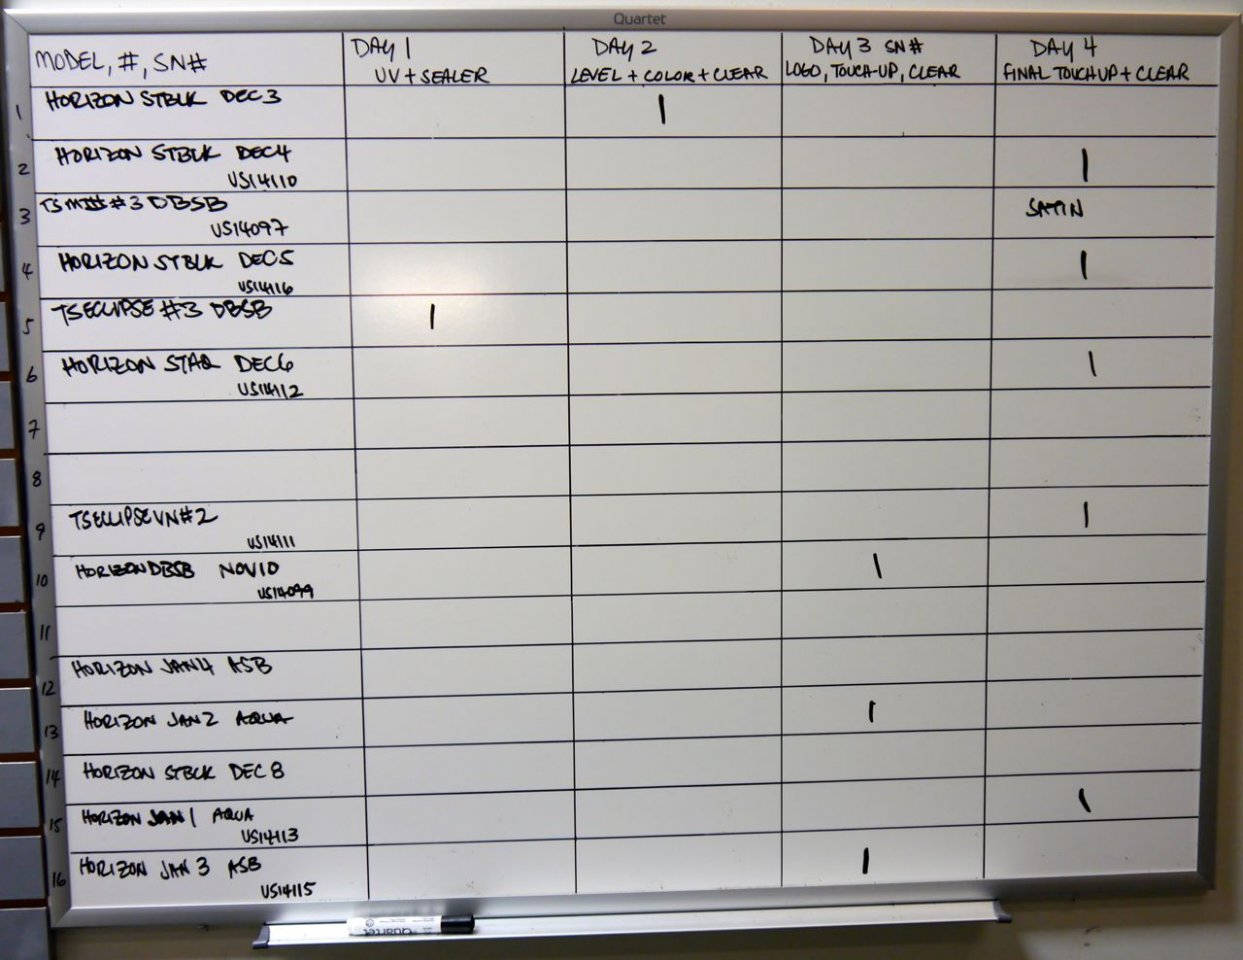 Quartet
MODEL, #, SN#
DAY 1
UV + SEALER
DAY 2
LEVEL + COLOR + CLEAR
DAY 3 SN#
LOGO, TOUCH-UP, CLEAR
DAY 4
FINAL TOUCHUP + CLEAR
1 HORIZON STBLK DEC 3 |
2 HORIZON STBLK DEC4 |
US14110
3 #3 DBSB SATIN
US14097
4 HORIZON STBLK DEC5 |
US14116
5 TS ECLIPSE #3 DBSB |
6 HORIZON STAQ DEC6 |
US14112
7
8
9 TS ECLIPSE VN#2 |
US14111
10 HORIZON DBSB NOV10 |
US14099
11
12 HORIZON JAN4 ASB
13 HORIZON JAN 2 AQUA |
14 HORIZON STBLK DEC 8
15 HORIZON JAN 1 AQUA |
US14113
16 HORIZON JAN 3 ASB |
US14115
Quartet